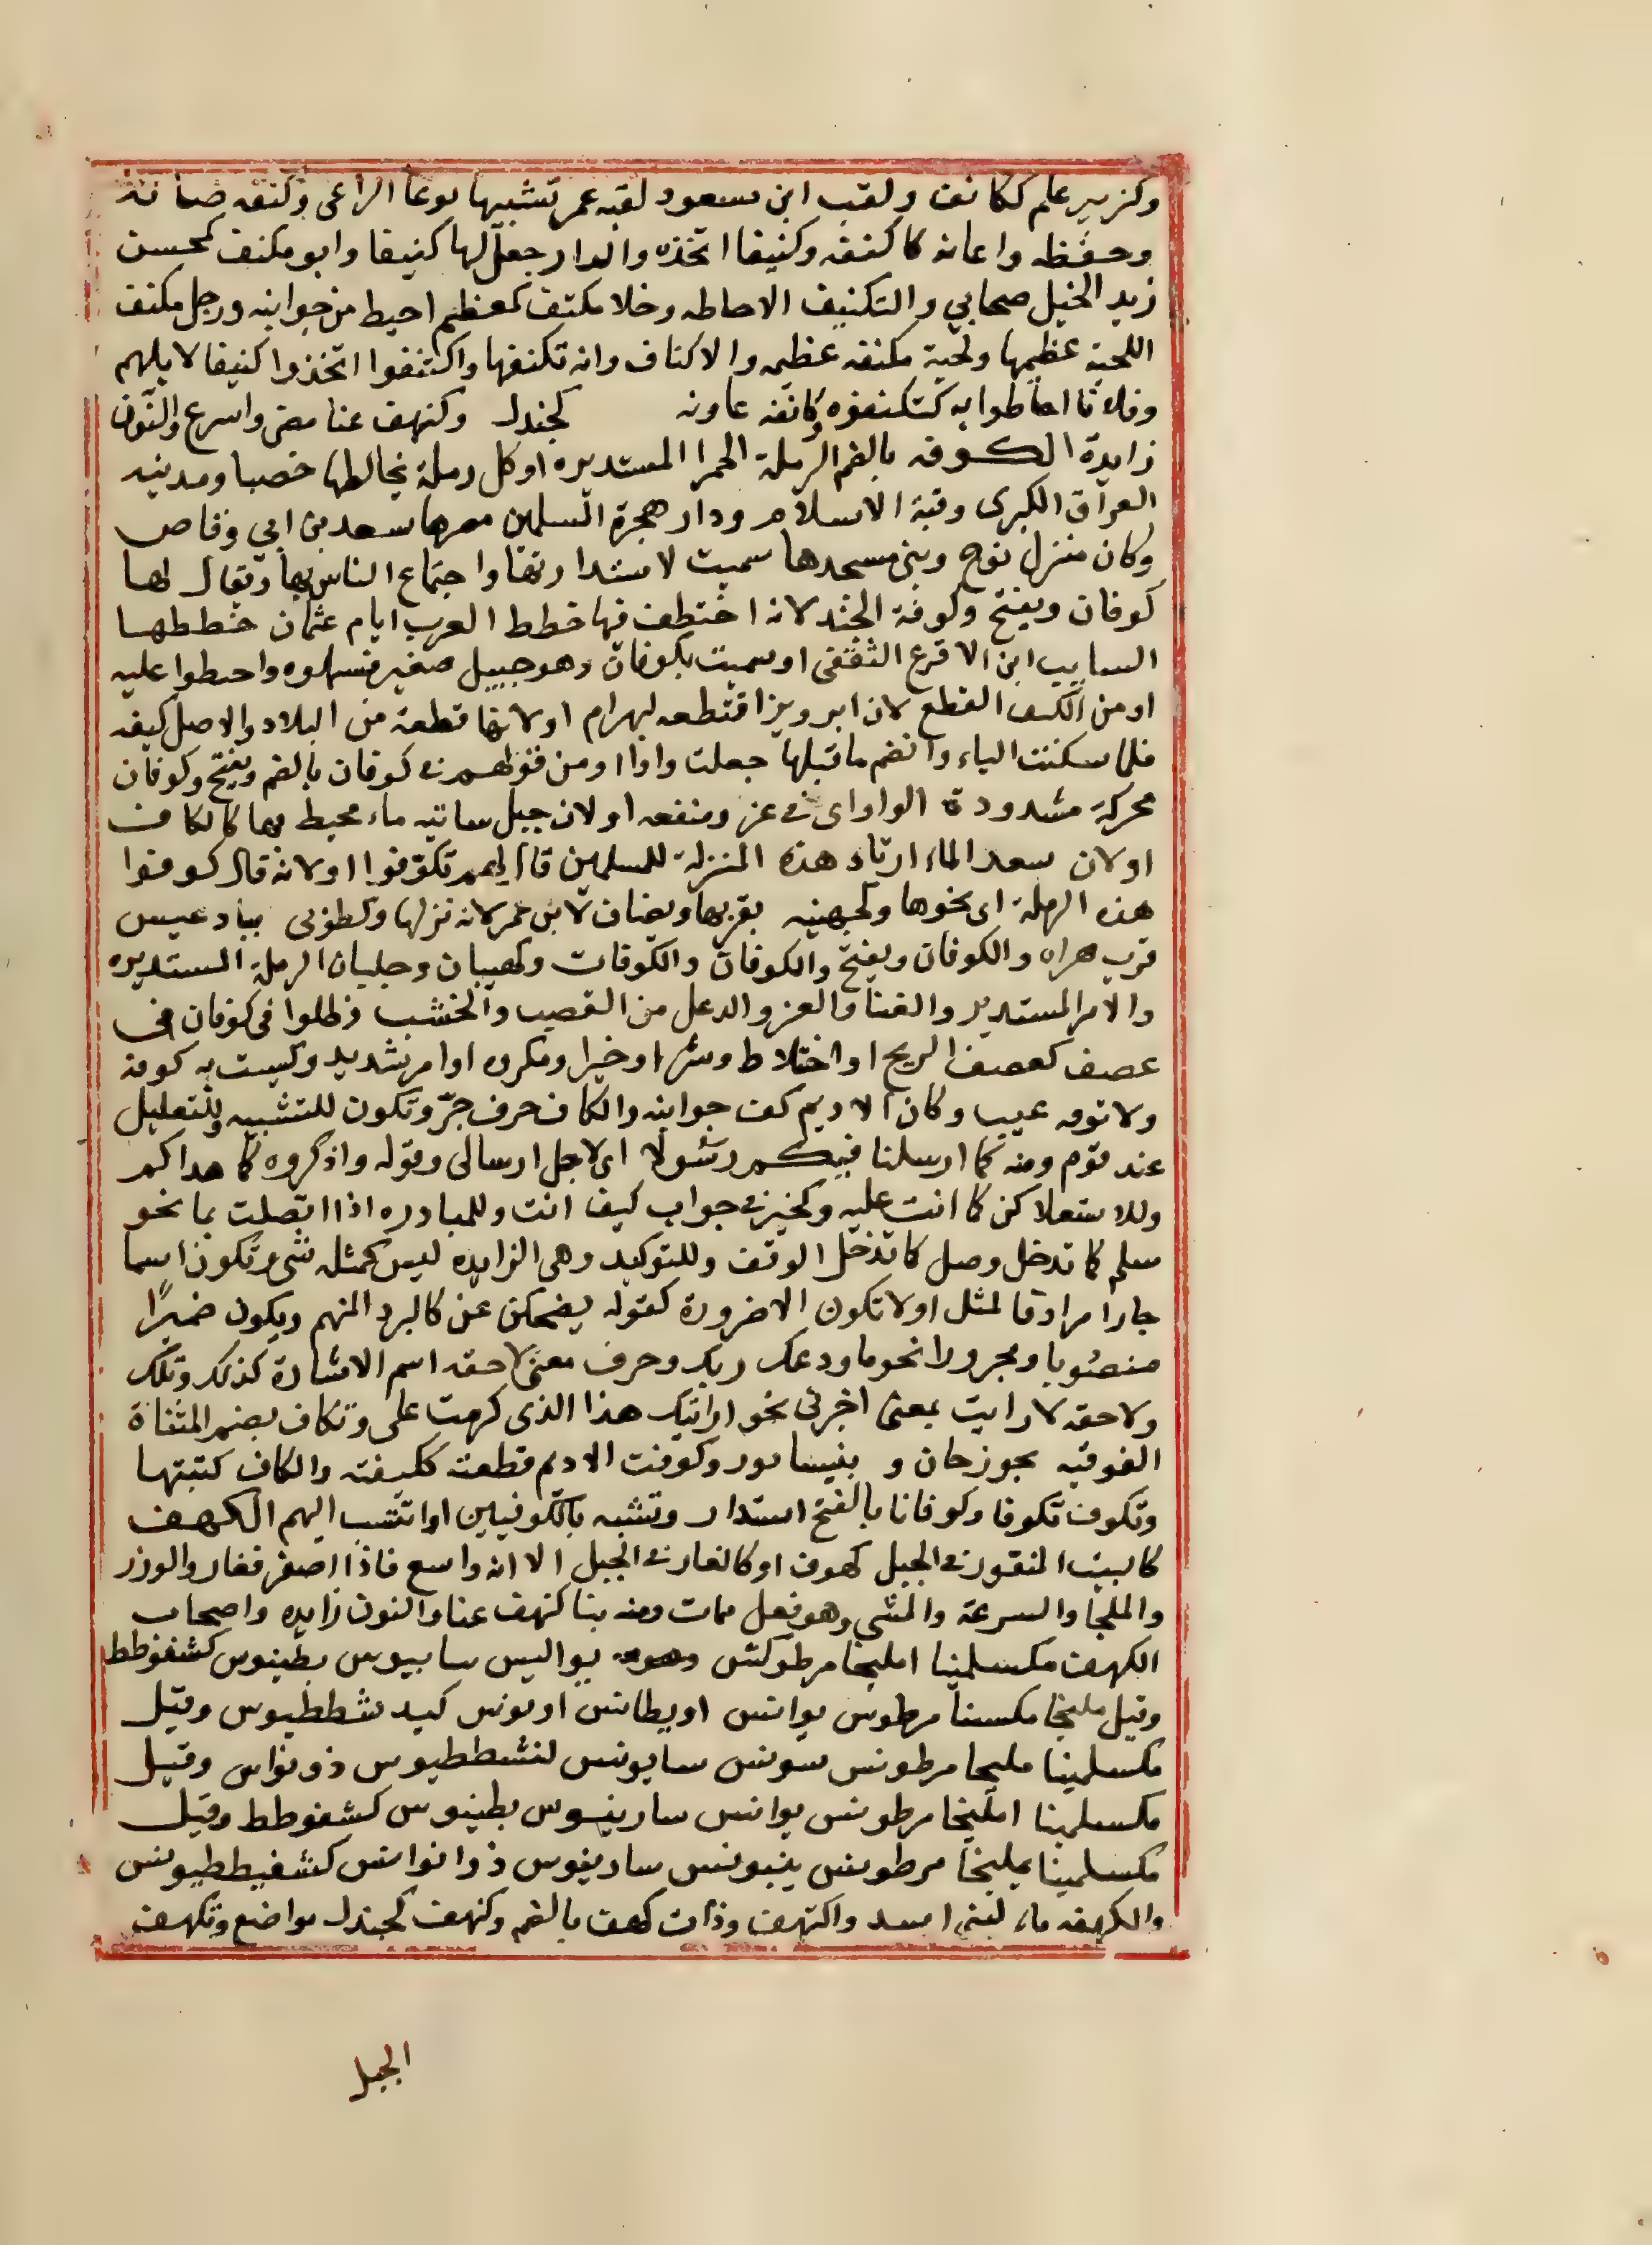 وكزبير علم ككانف ولقب ابن مسعود لقبه عمر تشبيها بوعا الراعى وكنفه صانه
وحفظه واعانه كاكنفه وكنيفا اتخذه والدار جعل لها كنيفا وابو مكنف كمحسن
زيد الخيل صحابي والتكنيف الاحاطه وخلا مكتف كمعظم احيط من جوانبه ورجل مكنف
اللحية عظيمها ولحية مكنفه عظيمه والاكناف وانه تكنفها واكتنفوا اتخذوا كنيفا لابلهم
وفلانا احاطوا به كتكنفوه وكانفه عاونه كجندل وكنهف عنا مضى واسرع والنون
زايدة الكوفه بالضم الرملة الحمرا المستديره اوكل رملة يخالطها حصبا ومدينه
العراق الكبرى وقبة الاسلام ودار هجرة المسلمين مصرها سعد بن ابي وقاص
وكان منزل نوح وبنى مسجدها سميت لاستدارتها واجتماع الناس بها ويقال لها
كوفان ويفتح وكوفة الجند لانه اختطف فيها خطط العرب ايام عثمان خططها
السايب ابن الاقرع الثقفى او سميت بكوفان وهو جبيل صغير فسهلوه واحطوا عليه
او من الكيف القطع لان ابرويز اقتطعه لبهرام اولانها قطعة من البلاد والاصل كيفه
فلما سكنت الياء وانضم ماقبلها جعلت واوا او من قولهم في كوفان بالضم ويفتح وكوفان
محركة مشدودة الواو اى في عز ومنعه او لان جبل ساتيد ماء محيط بهما كالكاف
اولان سعد الماء ارتاد هذه المنزلة للمسلمين قال لهم تكوفوا اولانه قال كوفوا
هذه الرملة اى نحوها وكجهينه بقربها ويضاف لابن عمر لانه نزلها وكطوبى ببادعيس
قرب هراه والكوفان ويفتح والكوفان والكوفان وكهيبان وجلبان الرملة المستديره
والامر المستدير والعنا والعز والدعل من القصب والخشب وظلوا في كوفان في
عصف كعصف الريح او اختلاط وشر او خير او مكروه او امر شديد وليست به كوفه
ولاتوفه عيب وكاف الاديم كفت جوانبه والكاف حرف جرّ وتكون للتشبيه وللتعليل
عند قوم ومنه كما ارسلنا فيكم رسولا اى لاجل ارسالى وقوله واذكروه كما هداكم
وللاستعلا كن كما انت عليه وكخير في جواب كيف انت وللمبادره اذا اتصلت بما نحو
سلم كما تدخل وصل كما تدخل الوقت وللتوكيد وهى الزايده ليس كمثله شى وتكون اسما
جارا مرادفا لمثل اولا تكون الا ضرورة كقوله يضحكن عن كالبرد المنهم ويكون ضميرًا
منصُوبا ومجرورا نحو ماودعك ربك وحرف معنى لاحقه اسم الاشارة كذلك وتلك
ولاحقه لارايت بمعنى اخبرنى نحو ارايتك هذا الذى كرمت على وتكاف بضم المثناة
الفوقيه بجوزجان و بنيسابور وكوفت الاديم قطعته ككيفته والكاف كتبتها
وتكوف تكوفا وكوفانا بالفتح استدار وتشبه بالكوفيين او انتسب اليهم الكهف
كالبيت المنقور في الجبل كهوف او كالغار في الجبل الا انه واسع فاذا اصغر فغار والوزر
والملجا والسرعة والمشى وهو فعل ممات ومنه بنا كنهف عنا والنون زايده واصحاب
الكهف مكسلمينا امليخا مرطوكش يواليس سابيوس بطينوس كشفوطط
وقيل مليخا مكسنا مرطوس يوانس اوبطانس اونوس كيد شططيوس وقيل
مكسلمينا مليخا مرطونس سونس سايونس لنشططيوس ذونواس وقيل
مكسلمينا امليخا مرطونس يوانس سارينوس بطينوس كشفوطط وقيل
مكسلمينا يمليخا مرطونس ينيونس سارينوس ذوانوانس كشفيططيونس
والكهفه ماء لبنى اسد واكتهف وذات كهف بالضم وكنهف كجندل مواضع وتكهف
الجبل